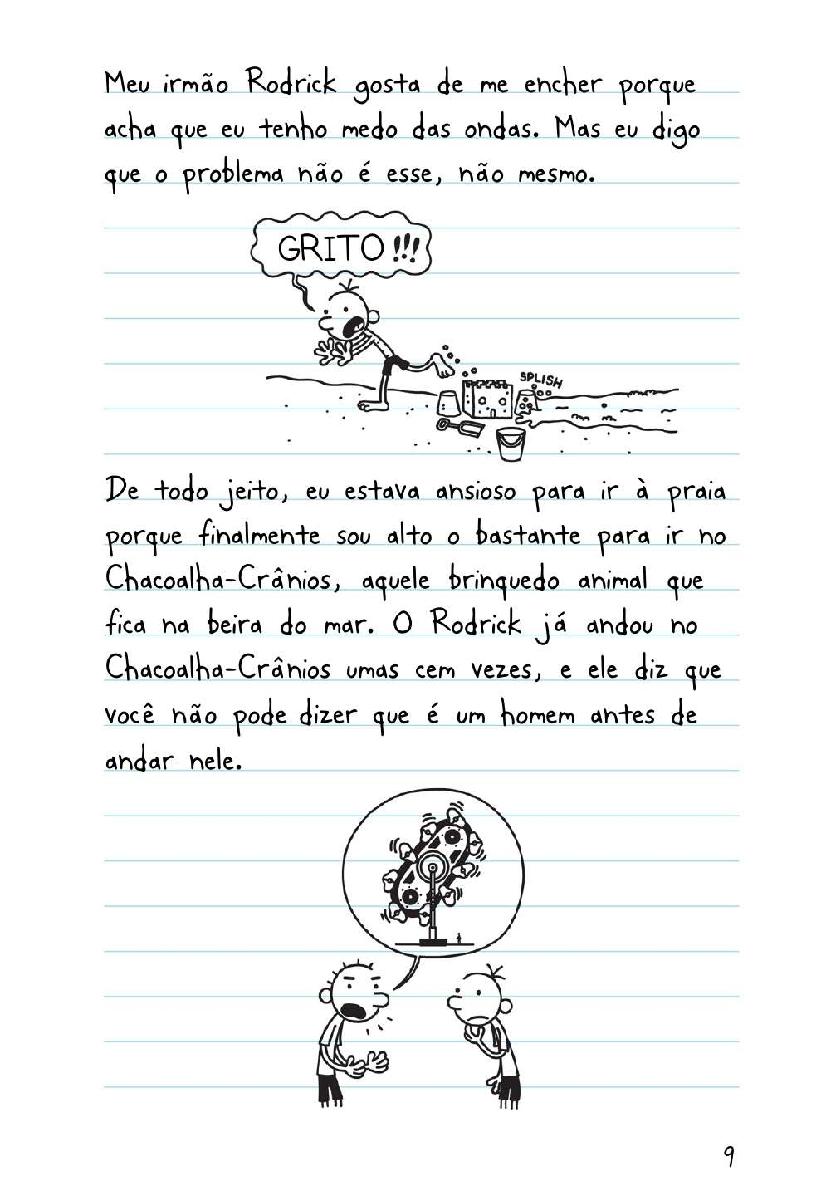 Meu irmão Rodrick gosta de me encher porque
acha que eu tenho medo das ondas. Mas eu digo
que o problema não é esse, não mesmo.
GRITO!!!
SPLISH
De todo jeito, eu estava ansioso para ir à praia
porque finalmente sou alto o bastante para ir no
Chacoalha-Crânios, aquele brinquedo animal que
fica na beira do mar. O Rodrick já andou no
Chacoalha-Crânios umas cem vezes, e ele diz que
você não pode dizer que é um homem antes de
andar nele.
9